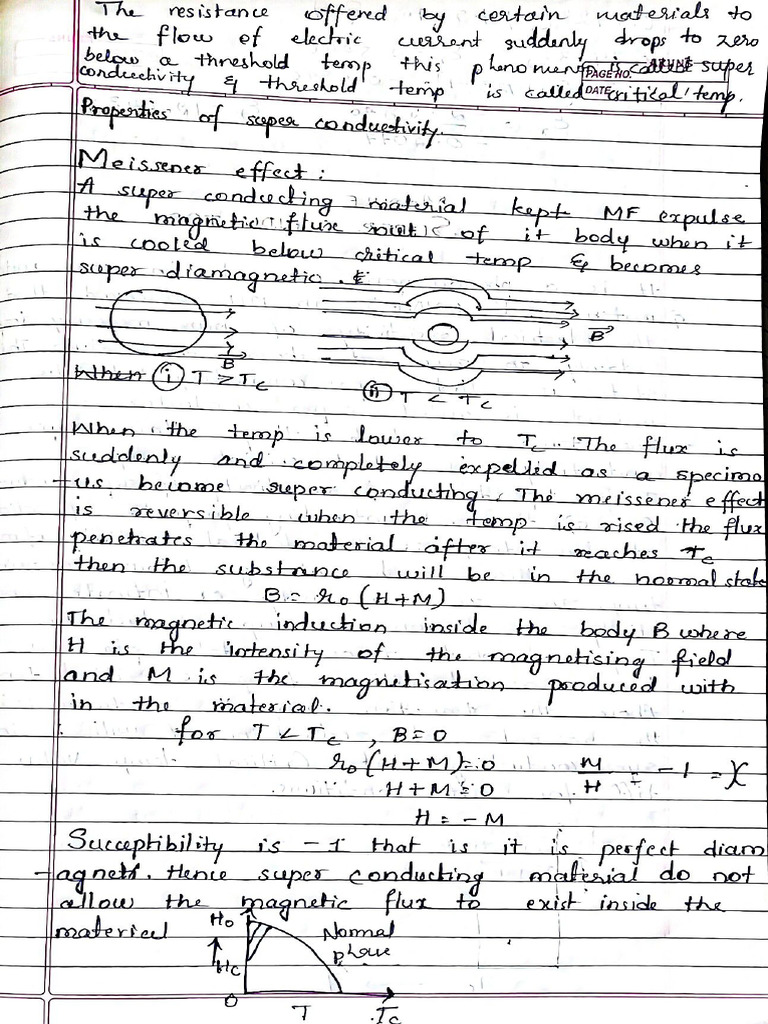 The resistance offered by certain materials to
the flow of electric current suddenly drops to zero
below a threshold temp this phenomen is called super
conductivity & threshold temp is called critical temp.
PAGE NO.
DATE
Properties of super conductivity.
Meissener effect:
A super conducting material kept MF expulse
the magnetic flux of it body when it
is cooled below critical temp & becomes
super diamagnetic.
B
B
When (i) T ≥ Tc
(ii) T < Tc
When the temp is lower to Tc. The flux is
suddenly and completely expelled as a specimo
-us become super conducting. The meissener effect
is reversible when the temp is rised the flux
penetrates the material after it reaches Tc
then the substance will be in the normal state
B = r0 (H+M)
The magnetic induction inside the body B where
H is the intensity of the magnetising field
and M is the magnetisation produced with
in the material.
for T < Tc , B=0
r0 (H+M)=0 M/H = -1 = X
H+M=0
H = -M
Succeptibility is -1 that is it is perfect diam
-agnets. Hence super conducting material do not
allow the magnetic flux to exist inside the
material
H0
Normal
phase
↑Hc
0
T Tc